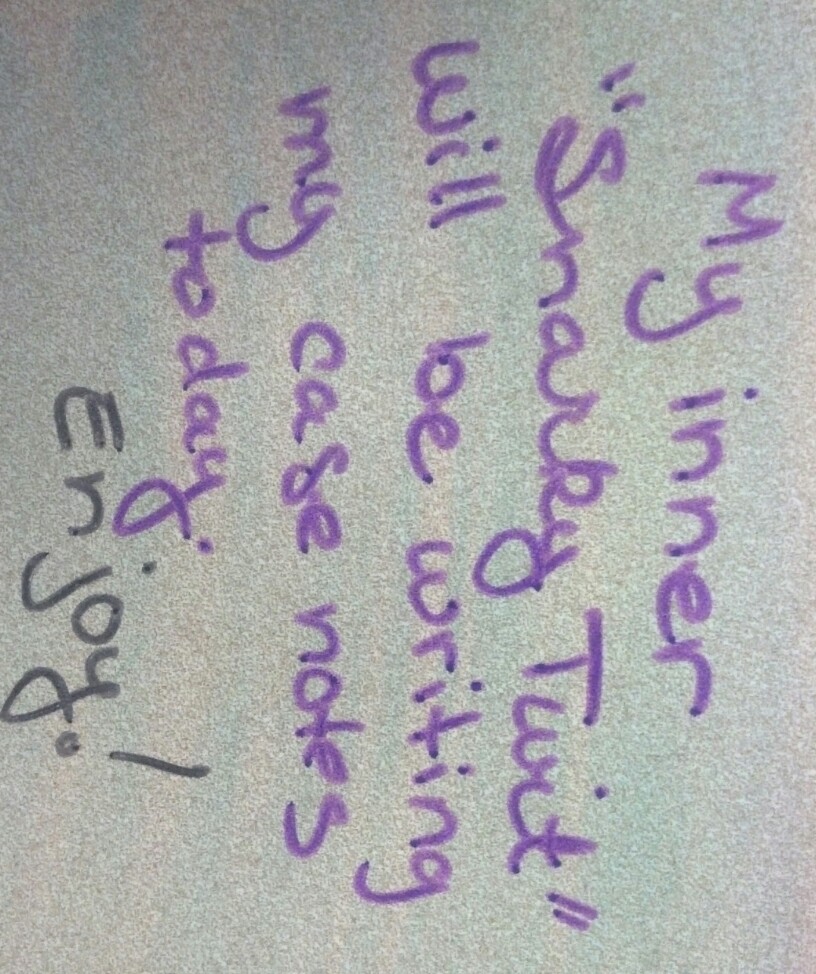 My inner
"Snarky Twit"
will be writing
my case notes
today.
Enjoy!